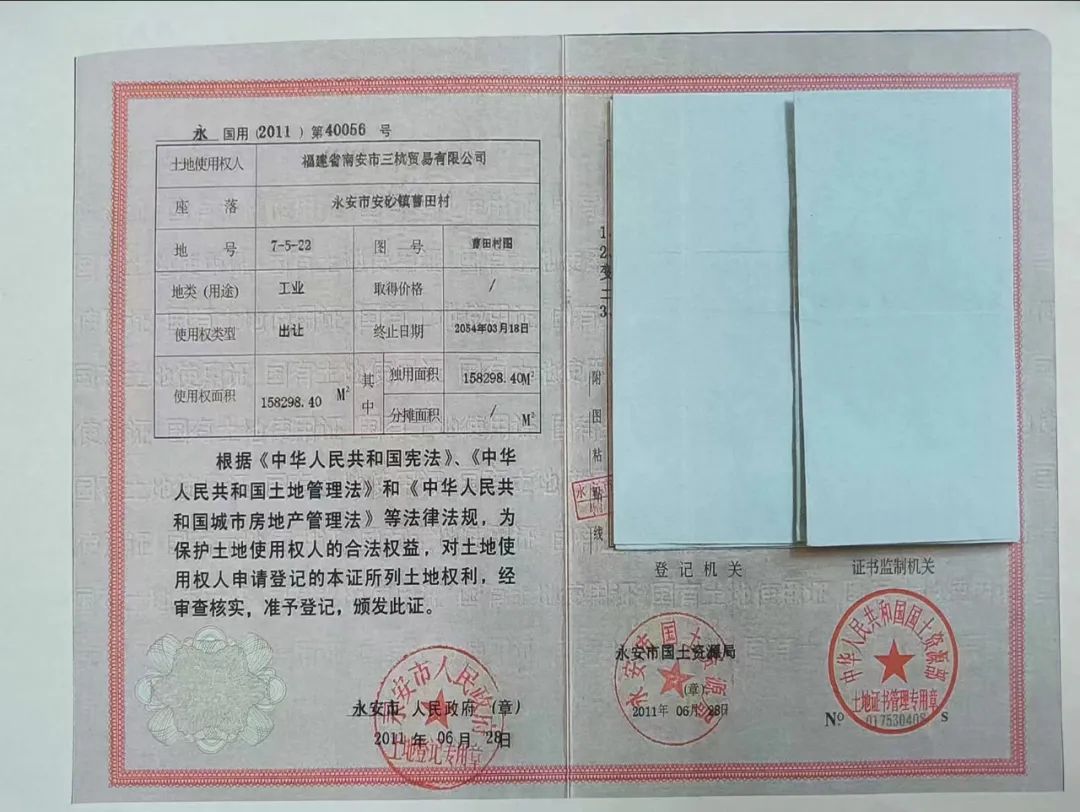 永 国用（2011）第40056 号
土地使用权人 福建省南安市三杭贸易有限公司
座 落 永安市安砂镇曹田村
地 号 7-5-22 图 号 曹田村图
地类（用途） 工业 取得价格 /
使用权类型 出让 终止日期 2054年03月18日
使用权面积 158298.40 M² 其中 独用面积 158298.40M²
分摊面积 / M²
根据《中华人民共和国宪法》、《中华
人民共和国土地管理法》和《中华人民共
和国城市房地产管理法》等法律法规，为
保护土地使用权人的合法权益，对土地使
用权人申请登记的本证所列土地权利，经
审查核实，准予登记，颁发此证。
永安市 人民政府 （章）
2011 年 06 月 28日
永安市人民政府
土地登记专用章
1.
2.
变
二
3.
附图粘贴线
登记机关
永安市国土资源局
（章）
2011年 06月 28日
永安市国土资源局
证书监制机关
中华人民共和国国土资源部
土地证书管理专用章
Nº 017530408 s